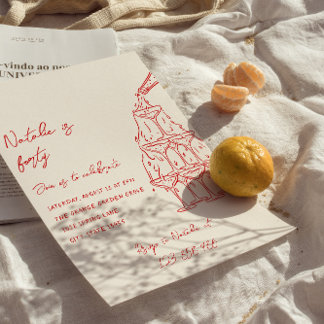 rvindo ao no
UNIVER
Natalie is
forty
Join us to celebrate
SATURDAY, AUGUST 12 AT 6PM
THE ORANGE GARDEN GROVE
1234 SPRING LANE
CITY, STATE 12345
RSVP to Natalie at
123 456 789